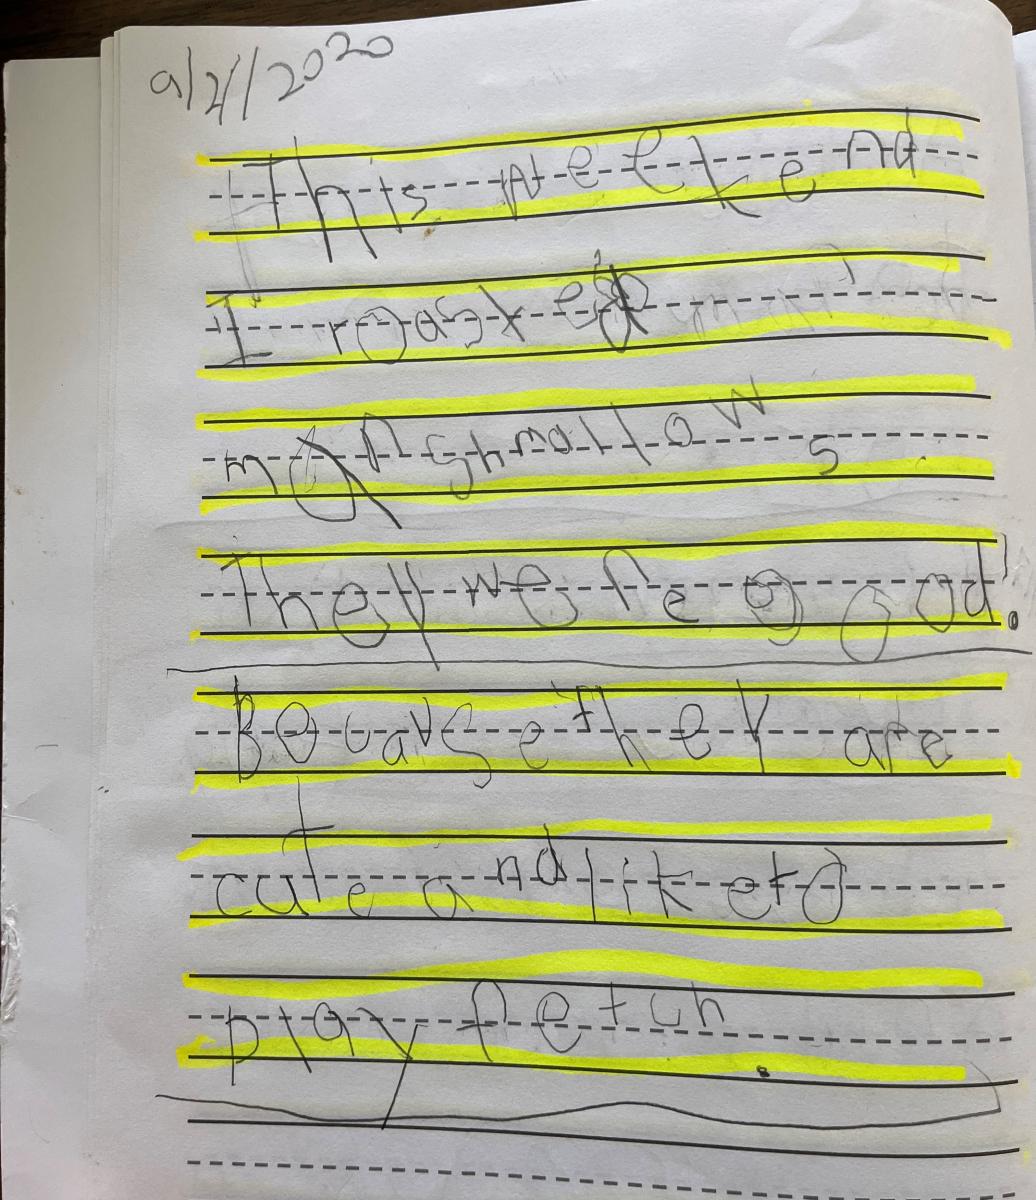 9/21/2020
This weekend
I roasted
marshmallows
They were good.
Because they are
cute and like to
play fetch.